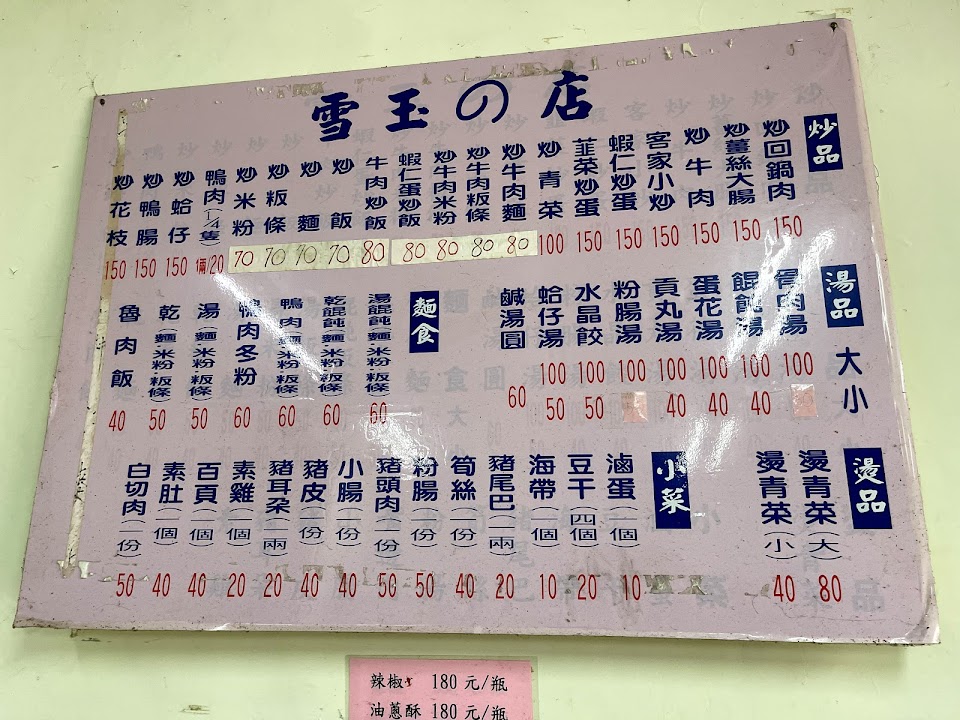 雪玉の店
炒品
炒回鍋肉 150
炒薑絲大腸 150
炒牛肉 150
客家小炒 150
蝦仁炒蛋 150
韮菜炒蛋 150
炒青菜 100
炒牛肉麵 80
炒牛肉粄條 80
炒牛肉米粉 80
蝦仁蛋炒飯 80
牛肉炒飯 80
炒飯 70
炒麵 70
炒粄條 70
炒米粉 70
鴨肉(1/4隻) 120
炒蛤仔 150
炒鴨腸 150
炒花枝 150
湯品 大 小
骨肉湯 100
餛飩湯 100 40
蛋花湯 100 40
貢丸湯 100 40
粉腸湯 100
水晶餃 100 50
蛤仔湯 100 50
鹹湯圓 60
麵食
湯餛飩(麵 米粉 粄條) 60
乾餛飩(麵 米粉 粄條) 60
鴨肉(麵 米粉 粄條) 60
鴨肉冬粉 60
湯(麵 米粉 粄條) 50
乾(麵 米粉 粄條) 50
魯肉飯 40
燙品
燙青菜(大) 80
燙青菜(小) 40
小菜
滷蛋(一個) 10
豆干(四個) 20
海帶(一個) 10
豬尾巴(一兩) 20
筍絲(一份) 40
粉腸(一份) 50
豬頭肉(一份) 50
小腸(一份) 40
豬皮(一份) 40
豬耳朵(一兩) 20
素雞(一個) 20
百頁(一個) 40
素肚(一個) 40
白切肉(一份) 50
辣椒 180 元/瓶
油蔥酥 180 元/瓶